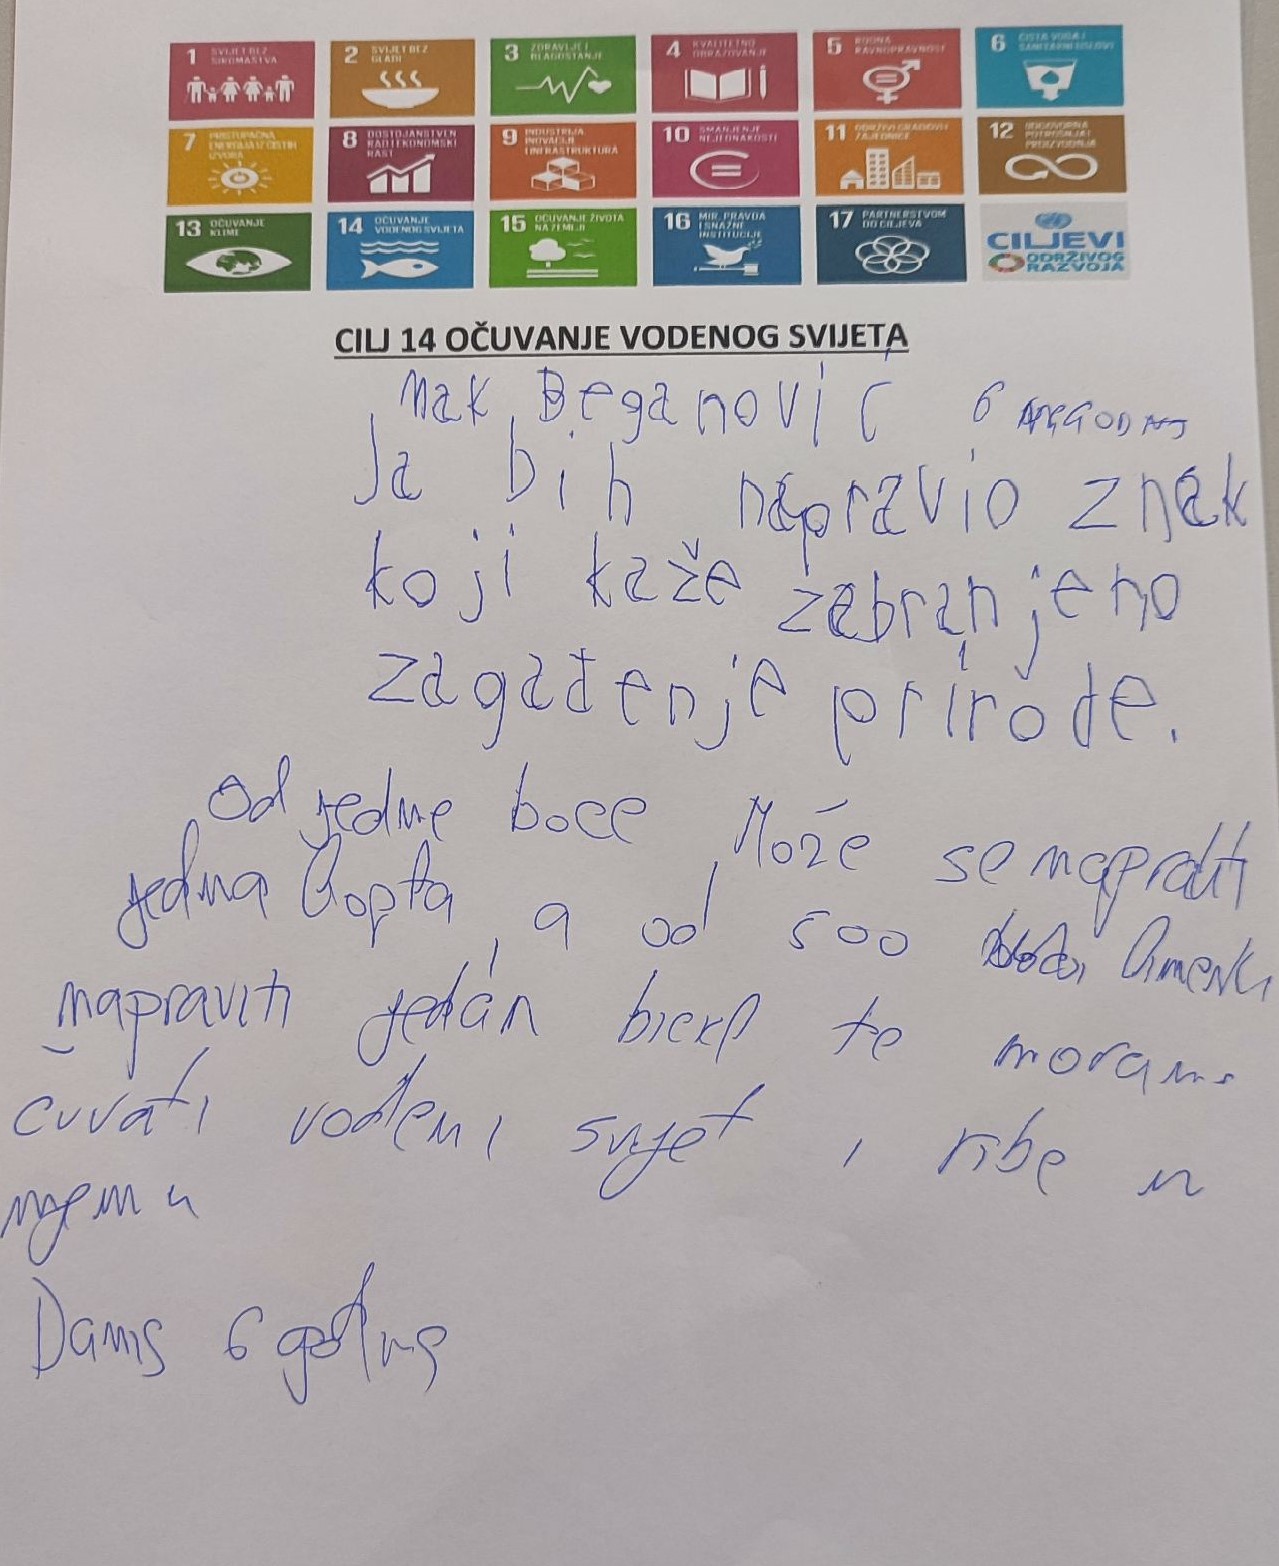 1 SVIJET BEZ SIROMAŠTVA
2 SVIJET BEZ GLADI
3 ZDRAVLJE I BLAGOSTANJE
4 KVALITETNO OBRAZOVANJE
5 RODNA RAVNOPRAVNOST
6 ČISTA VODA I SANITARNI USLOVI
7 PRISTUPAČNA ENERGIJA IZ ČISTIH IZVORA
8 DOSTOJANSTVEN RAD I EKONOMSKI RAST
9 INDUSTRIJA, INOVACIJE I INFRASTRUKTURA
10 SMANJENJE NEJEDNAKOSTI
11 ODRŽIVI GRADOVI I ZAJEDNICE
12 ODGOVORNA POTROŠNJA I PROIZVODNJA
13 OČUVANJE KLIME
14 OČUVANJE VODENOG SVIJETA
15 OČUVANJE ŽIVOTA NA ZEMLJI
16 MIR, PRAVDA I SNAŽNE INSTITUCIJE
17 PARTNERSTVOM DO CILJEVA
CILJEVI
ODRŽIVOG
RAZVOJA
CILJ 14 OČUVANJE VODENOG SVIJETA
Mak Beganović 6
Ja bih napravio znak
koji kaže zabranjeno
zagađenje prirode.
Od jedne boce Može se
jedna lopta, a od 500
napraviti jedan te
čuvati vodeni svijet i ribe u
njemu
Danis 6 godina